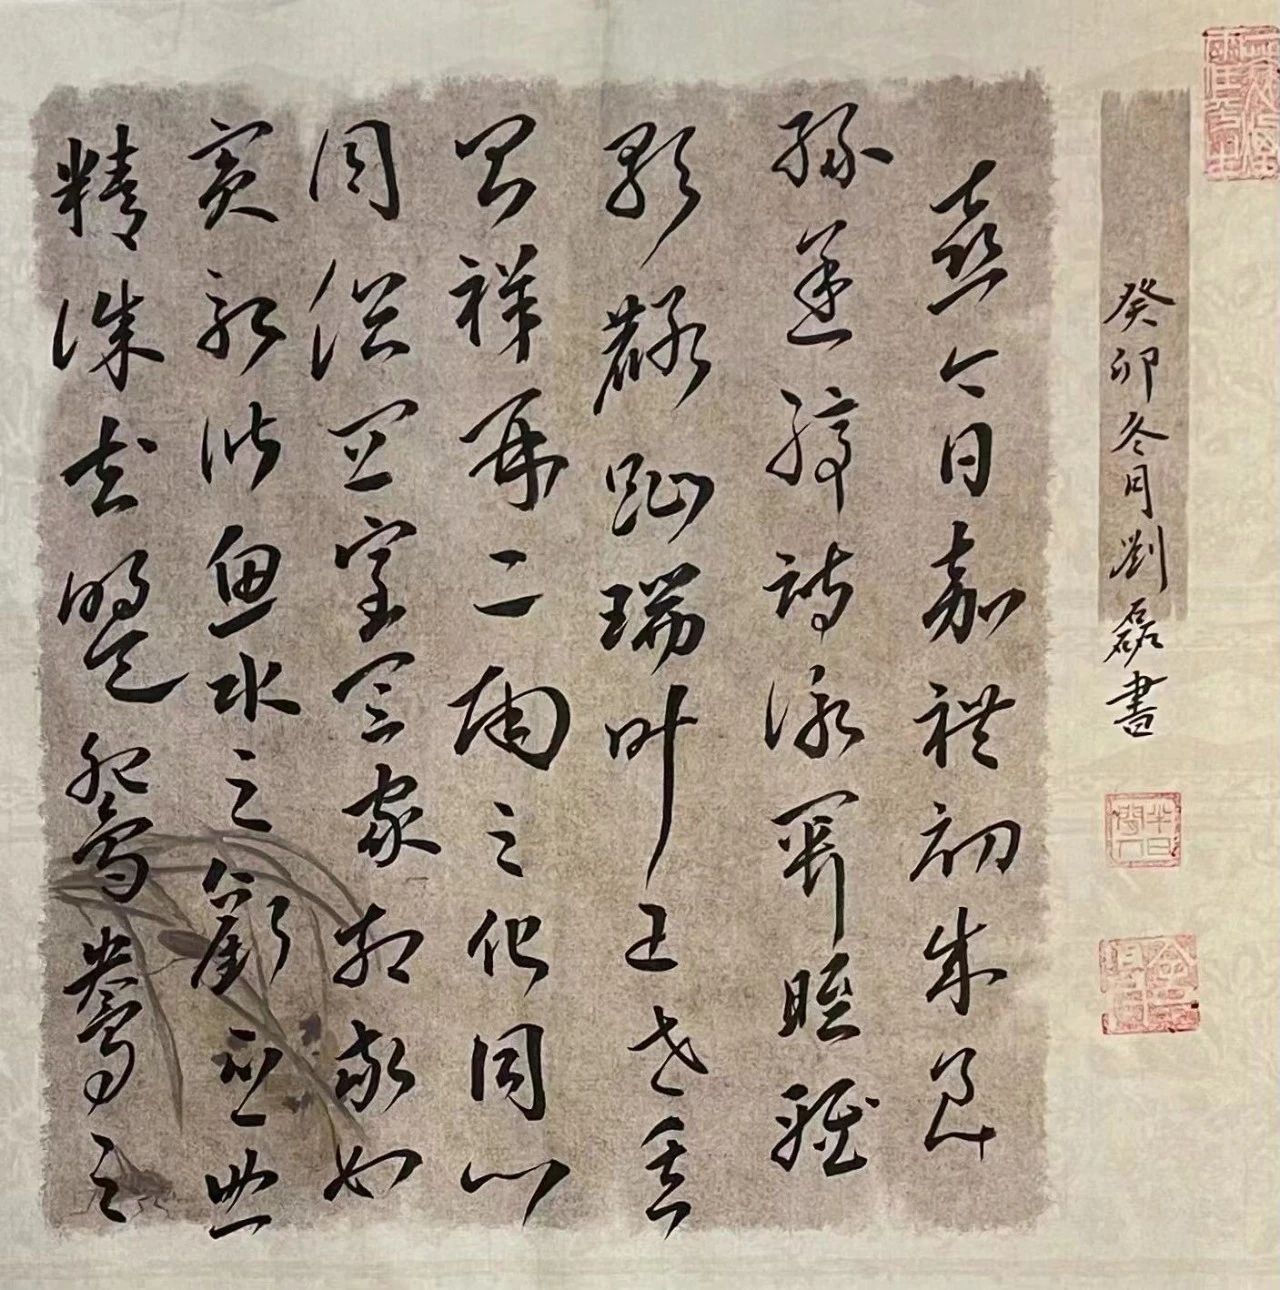 癸卯冬月劉磊書
喜今日嘉禮初成良
緣遂締詩詠關雎雅
歌麟趾瑞叶五世其
昌祥開二南之化同心
同德宜室宜家相敬如
賓永諧魚水之歡互助
精誠共盟鴛鴦之